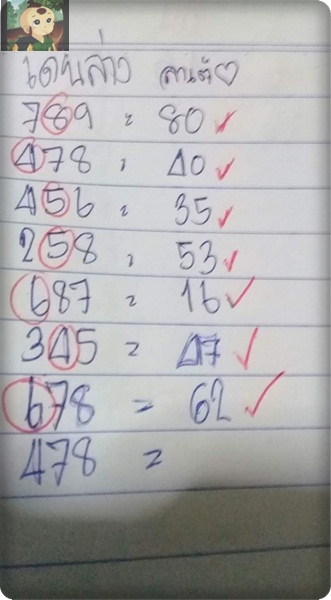 เด่นล่าง สามตัว
789 = 80 ✓
478 = 40 ✓
456 = 35 ✓
258 = 53 ✓
687 = 16 ✓
345 = 47 ✓
678 = 62 ✓
478 =